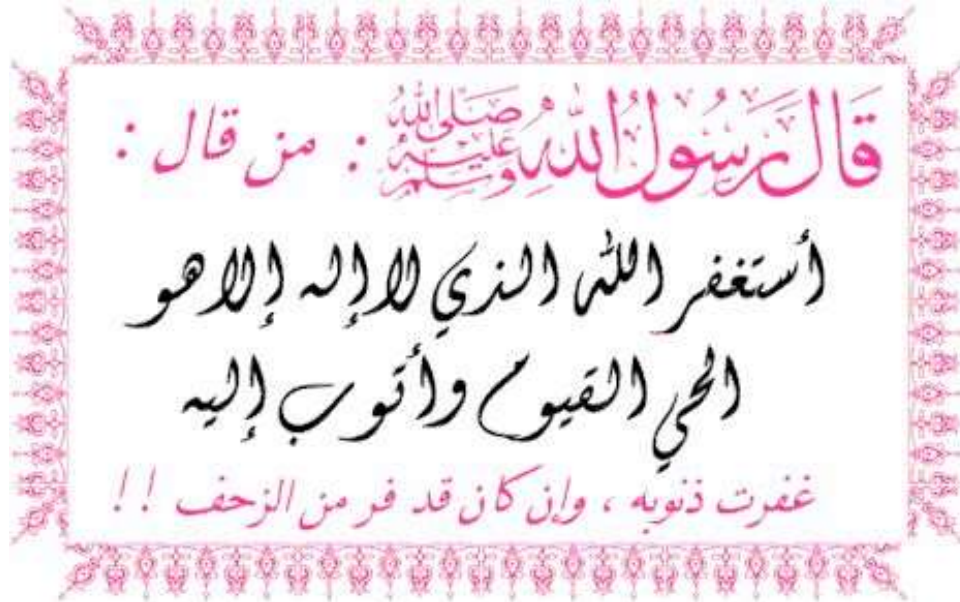 قَالَ رَسُولُ اللهِ صَلَّى اللهُ عَلَيْهِ وَسَلَّمَ : من قال :
أستغفر الله الذي لا إله إلا هو
الحي القيوم وأتوب إليه
غفرت ذنوبه ، وإن كان قد فر من الزحف !!